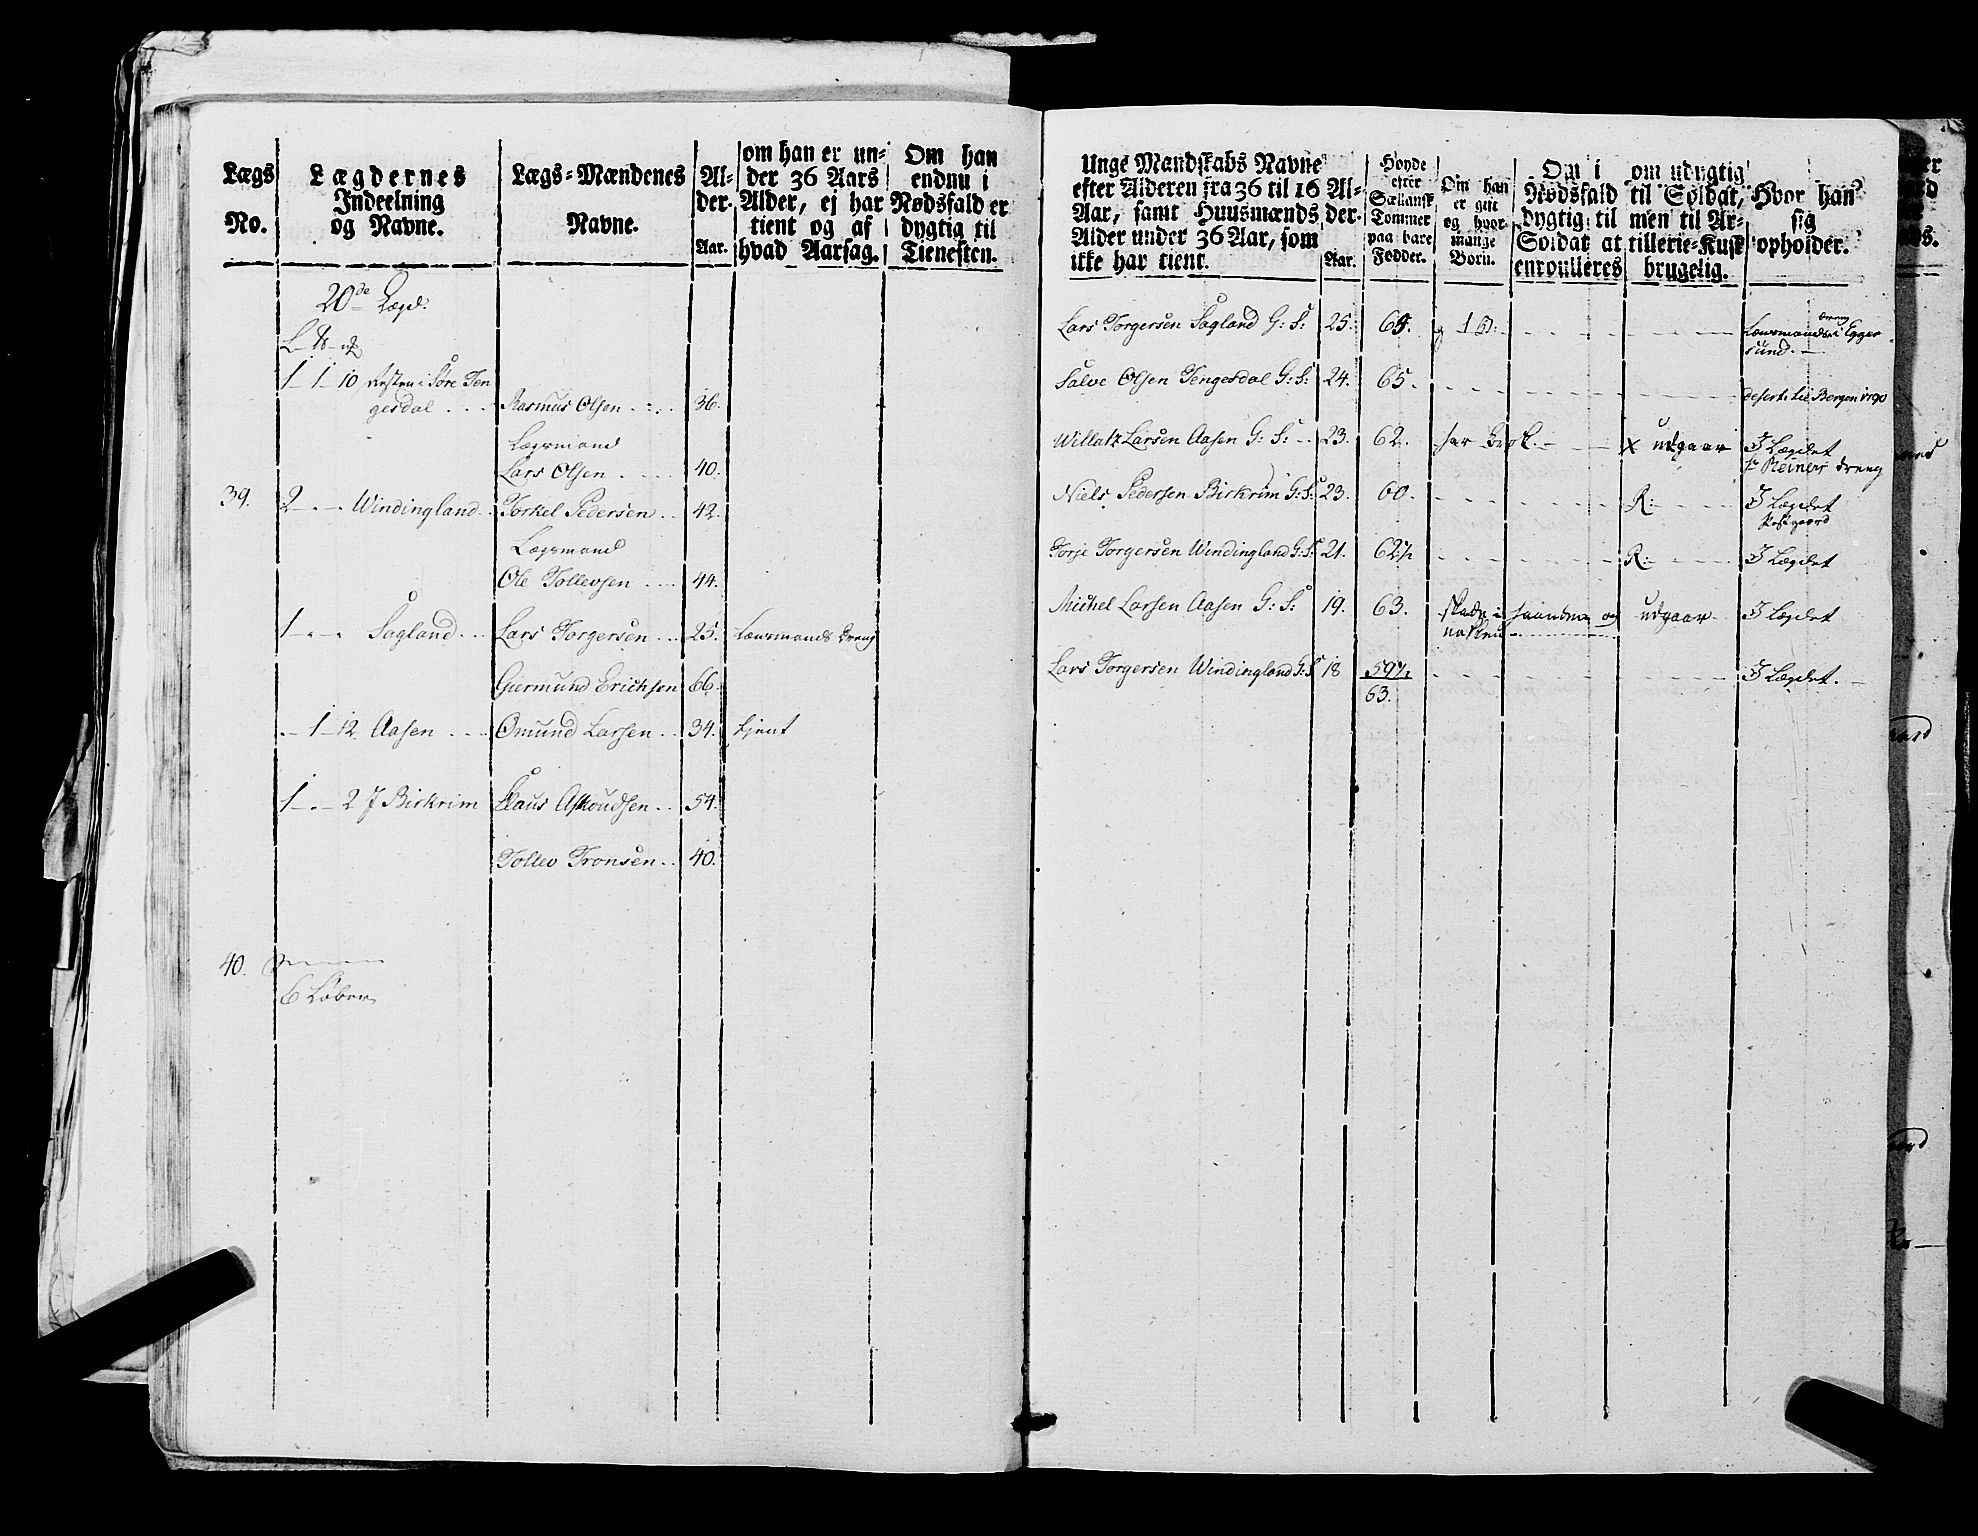 Lægs No.
Lægdernes Indeelning og Navne.
Lægs=Mændenes Navne.
Al-der. Aar.
om han er un=
der 36 Aars
Alder, ej har
tient og af
hvad Aarsag.
Om han
endnu i
Nødsfald er
dygtig til
Tienesten.
20de Lægd.
1 1 10 Resten i Søre Ten
gesdal . . . Rasmus Olsen . . . 36.
Lægsmand
Lars Olsen . . . 40.
39. 2 - . - Windingland . . Torkel Pedersen . . 42.
Lægsmand
Ole Tollevsen . . . 44.
1 - . - . Sagland . . . Lars Torgersen . . . 25. Lensmands Dreng
Giermund Erichsen 66.
. - 1 - 12 Aasen . . . . Omund Larsen . . 34. tjent
1 - . - 2 J Birkrim Claus Asmundsen . . 54.
Tollev Tronsen . . 40.
40.
6 Løber
Unge Mandskabs Navne
efter Alderen fra 36 til 16
Aar, samt Huusmænds
Alder under 36 Aar, som
ikke har tient.
Al=
der.
Aar.
Høyde
efter
Sællansk
Tommer
paa bare
Fødder.
Om han
er gift
og hvor=
mange
Børn.
Om i
Nødsfald
dygtig til
Soldat at
enroulleres
om udygtig
til Soldat,
men til Ar=
tillerie=Kusk
brugelig.
Hvor han
sig
opholder.
Lars Torgersen Sagland G: S: 25. 65. g 1 B: Lensmands dreng i Egger
sund. -
Salve Olsen Tengesdal G: S: 24. 65. desert: til Bergen 1790
Willatz Larsen Aasen G: S: - 23. 62. har Brok. - x udgaar I Lægdet
Hr Reiners dreng
Niels Pedersen Birkrim G: S: 23. 60. R: I Lægdet
Præstgaard
Torje Torgersen Windingland G: S: 21. 62½ R: I Lægdet
Michel Larsen Aasen G: S: 19. 63. skade i haanden og udgaar - I Lægdet
nakken
Lars Torgersen Windingland G: S 18 59½ I Lægdet. -
63.